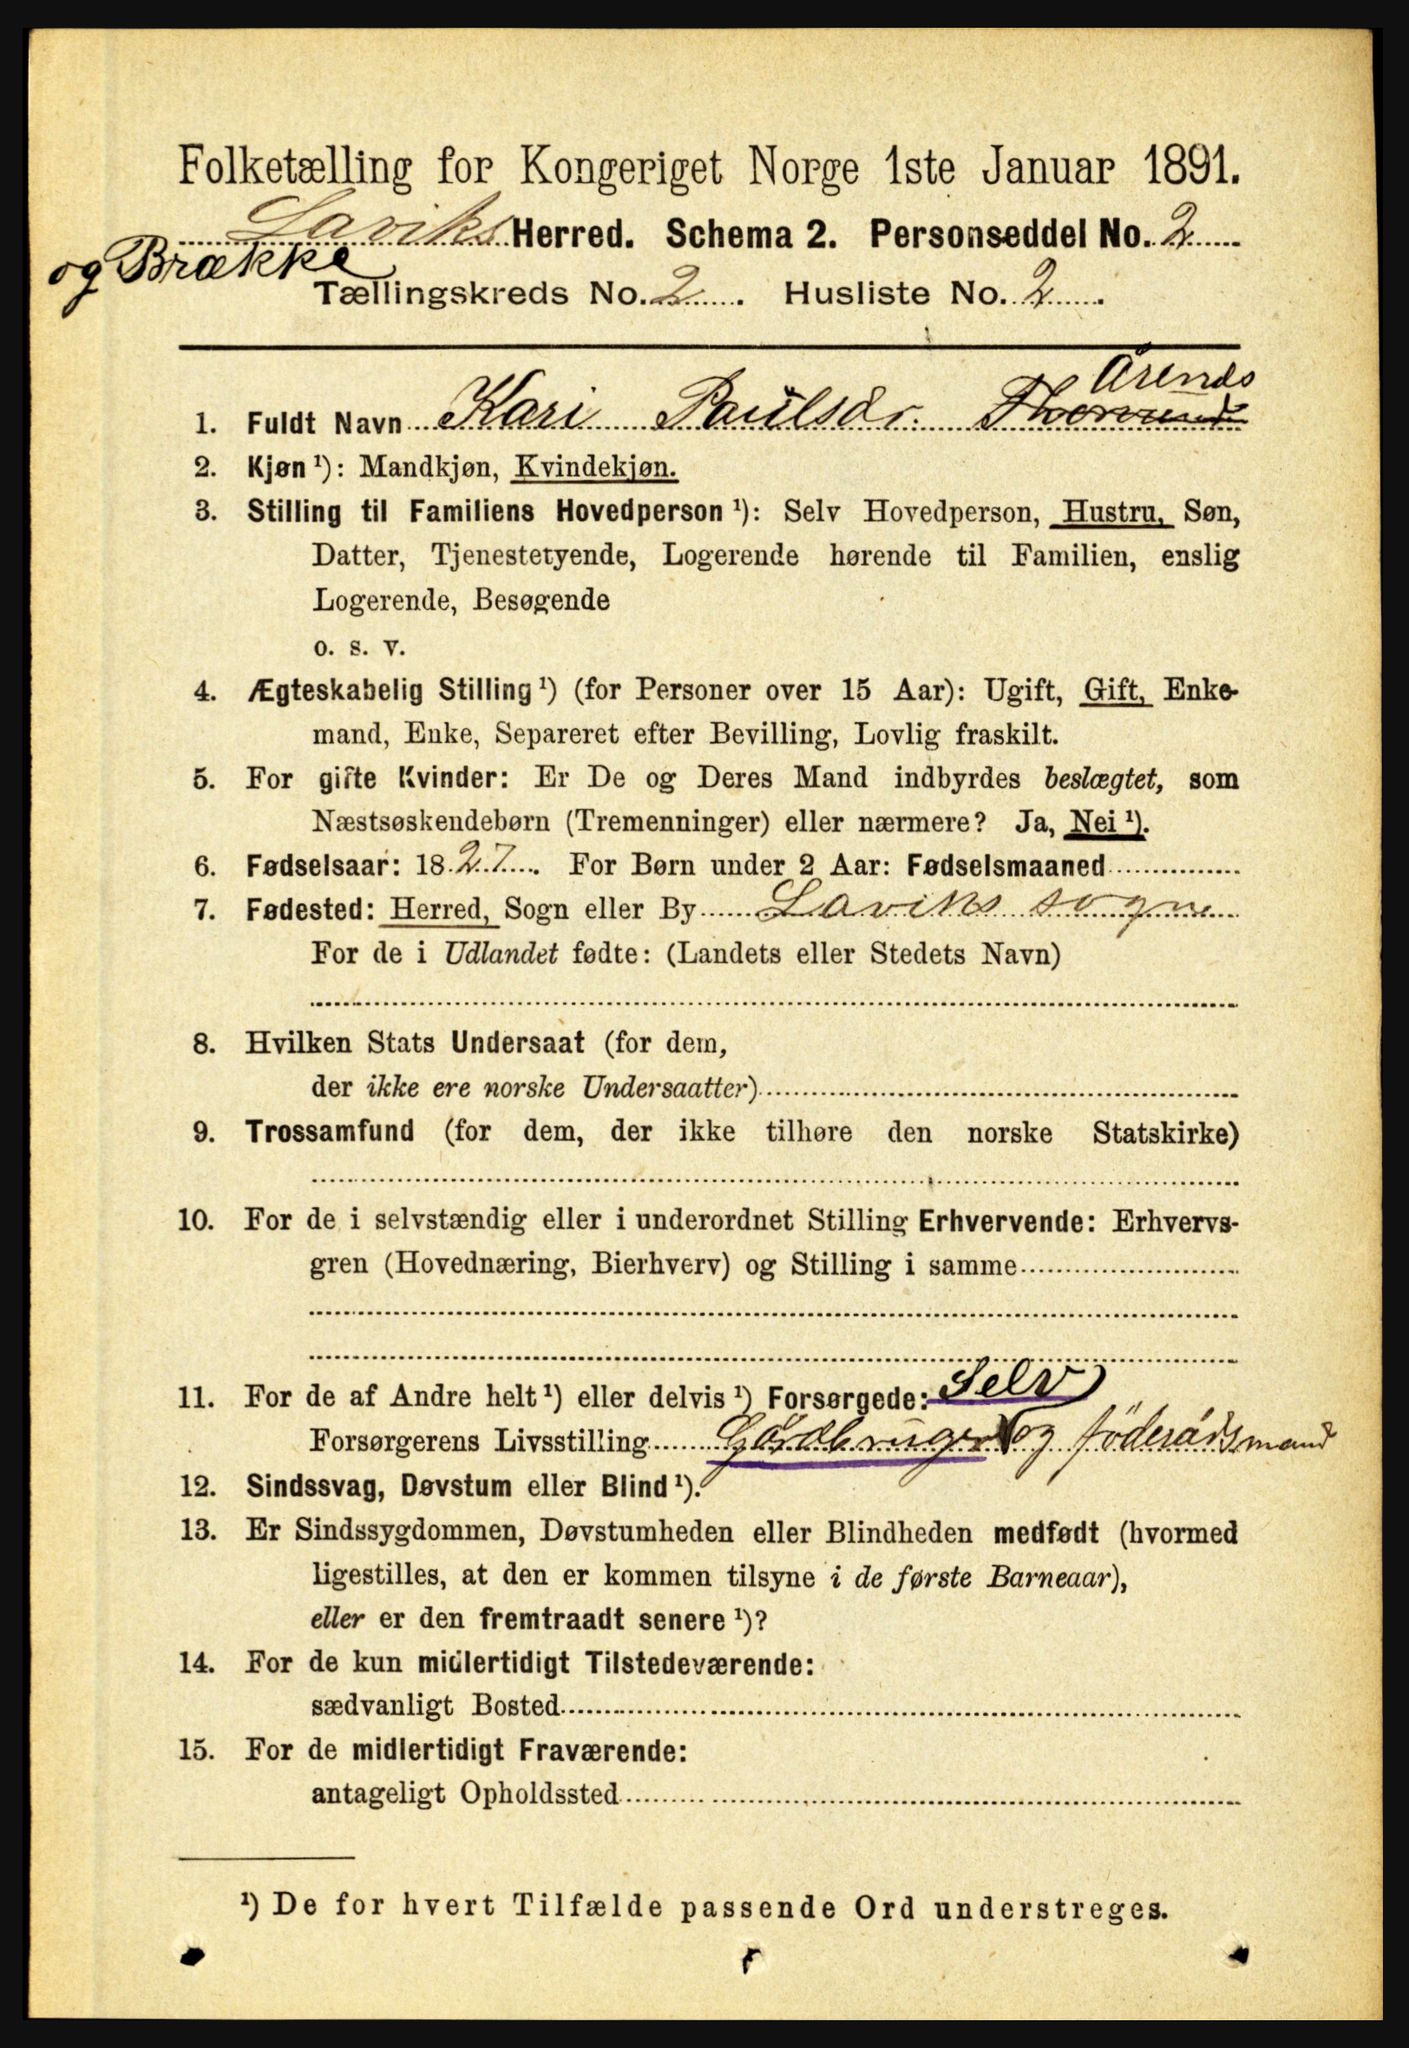 Folketælling for Kongeriget Norge 1ste Januar 1891.
Laviks Herred. Schema 2. Personseddel No. 2
og Brække
Tællingskreds No. 2. Husliste No. 2.
Arends
1. Fuldt Navn Kari Paulsdr.
2. Kjøn ¹): Mandkjøn, Kvindekjøn.
3. Stilling til Familiens Hovedperson ¹): Selv Hovedperson, Hustru, Søn,
Datter, Tjenestetyende, Logerende hørende til Familien, enslig
Logerende, Besøgende
o. s. v.
4. Ægteskabelig Stilling ¹) (for Personer over 15 Aar): Ugift, Gift, Enke-
mand, Enke, Separeret efter Bevilling, Lovlig fraskilt.
5. For gifte Kvinder: Er De og Deres Mand indbyrdes beslægtet, som
Næstsøskendebørn (Tremenninger) eller nærmere? Ja, Nei ¹).
6. Fødselsaar: 1827. For Børn under 2 Aar: Fødselsmaaned
7. Fødested: Herred, Sogn eller By Laviks sogn
For de i Udlandet fødte: (Landets eller Stedets Navn)
8. Hvilken Stats Undersaat (for dem,
der ikke ere norske Undersaatter)
9. Trossamfund (for dem, der ikke tilhøre den norske Statskirke)
10. For de i selvstændig eller i underordnet Stilling Erhvervende: Erhvervs-
gren (Hovednæring, Bierhverv) og Stilling i samme
11. For de af Andre helt ¹) eller delvis ¹) Forsørgede: Selv
Forsørgerens Livsstilling Gårdbruger og föderådsmand
12. Sindssvag, Døvstum eller Blind ¹).
13. Er Sindssygdommen, Døvstumheden eller Blindheden medfødt (hvormed
ligestilles, at den er kommen tilsyne i de første Barneaar),
eller er den fremtraadt senere ¹)?
14. For de kun midlertidigt Tilstedeværende:
sædvanligt Bosted
15. For de midlertidigt Fraværende:
antageligt Opholdssted
¹) De for hvert Tilfælde passende Ord understreges.